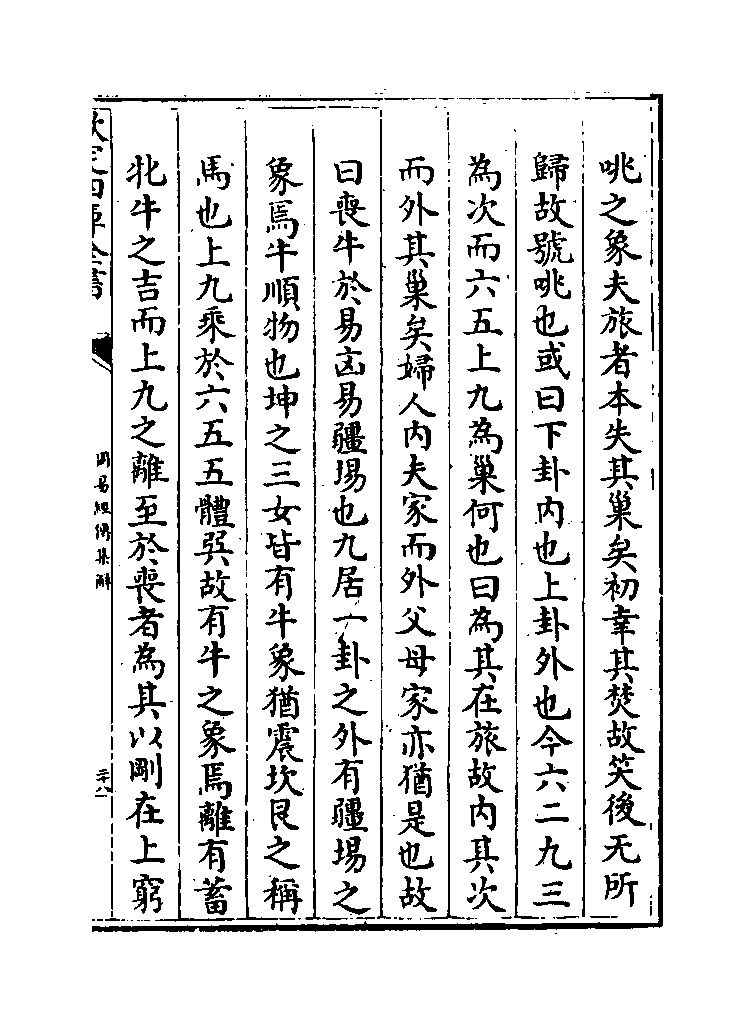 咷之象夫旅者本失其巢矣初幸其焚故笑後无所
歸故號咷也或曰下卦内也上卦外也今六二九三
為次而六五上九為巢何也曰為其在旅故内其次
而外其巢矣婦人内夫家而外父母家亦猶是也故
曰喪牛於易凶易疆埸也九居一卦之外有疆埸之
象焉牛順物也坤之三女皆有牛象猶震坎艮之稱
馬也上九乘於六五五體巽故有牛之象焉離有蓄
牝牛之吉而上九之離至於喪者為其以剛在上窮
欽定四庫全書
周易經傳集解
三十八